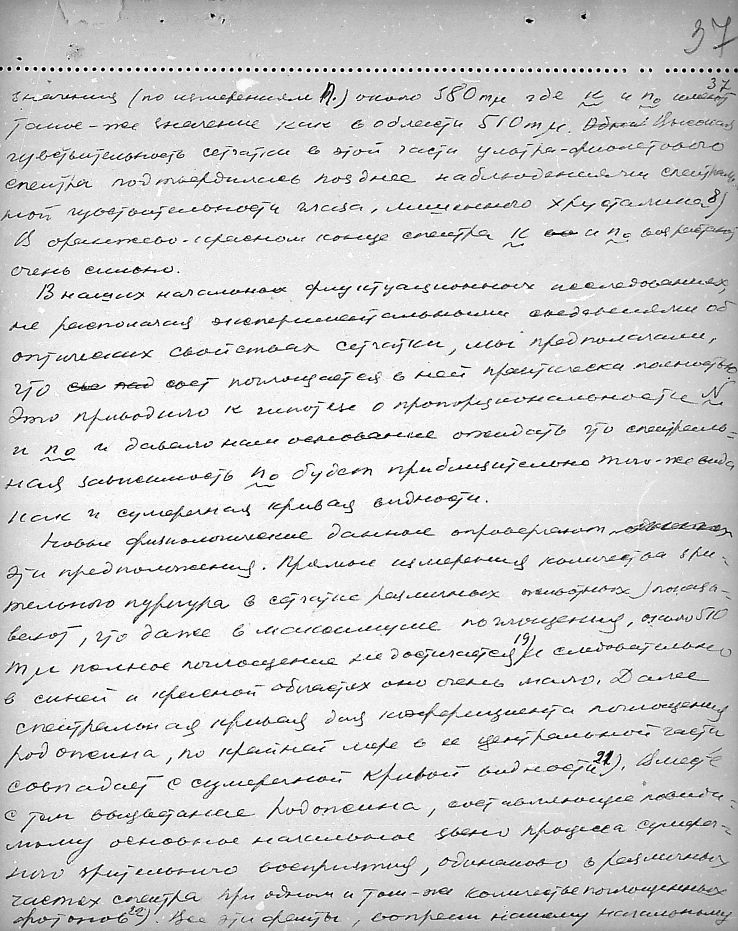 37
37
значения (по измерениям П.) около 380 mμ где κ и n₀ имеют
такое-же значение как в области 510 mμ. Высокая
чувствительность сетчатки в этой части ультра-фиолетового
спектра подтвердилась позднее наблюдениями спектраль-
ной чувствительности глаза, лишенного хрусталика 8)
В оранжево-красном конце спектра κ и n₀ возрастают
очень сильно.
В наших начальных флуктуационных исследованиях,
не располагая экспериментальными сведениями об
оптических свойствах сетчатки, мы предполагали,
что свет поглощается в ней практически полностью
Это приводило к гипотезе о пропорциональности N
и n₀ и давало нам основание ожидать что спектраль-
ная зависимость n₀ будет приблизительно того-же вида
как и сумеречная кривая видности.
Новые физиологические данные опровергают
эти предположения. Прямые измерения количества зри-
тельного пурпура в сетчатке различных животных показы-
вают, что даже в максимуме поглощения, около 510
mμ полное поглощение не достигается 19) и следовательно
в синей и красной областях оно очень мало. Далее
спектральная кривая для коэффициента поглощения
родопсина, по крайней мере в ее центральной части
совпадает с сумеречной кривой видности 21). Вместе
с тем выцветание родопсина, составляющее повиди-
мому основное начальное звено процесса сумереч-
ного зрительного восприятия, одинаково в различных
частях спектра при одном и том-же количестве поглощенных
фотонов 22). Все эти факты, вопреки нашему начальному